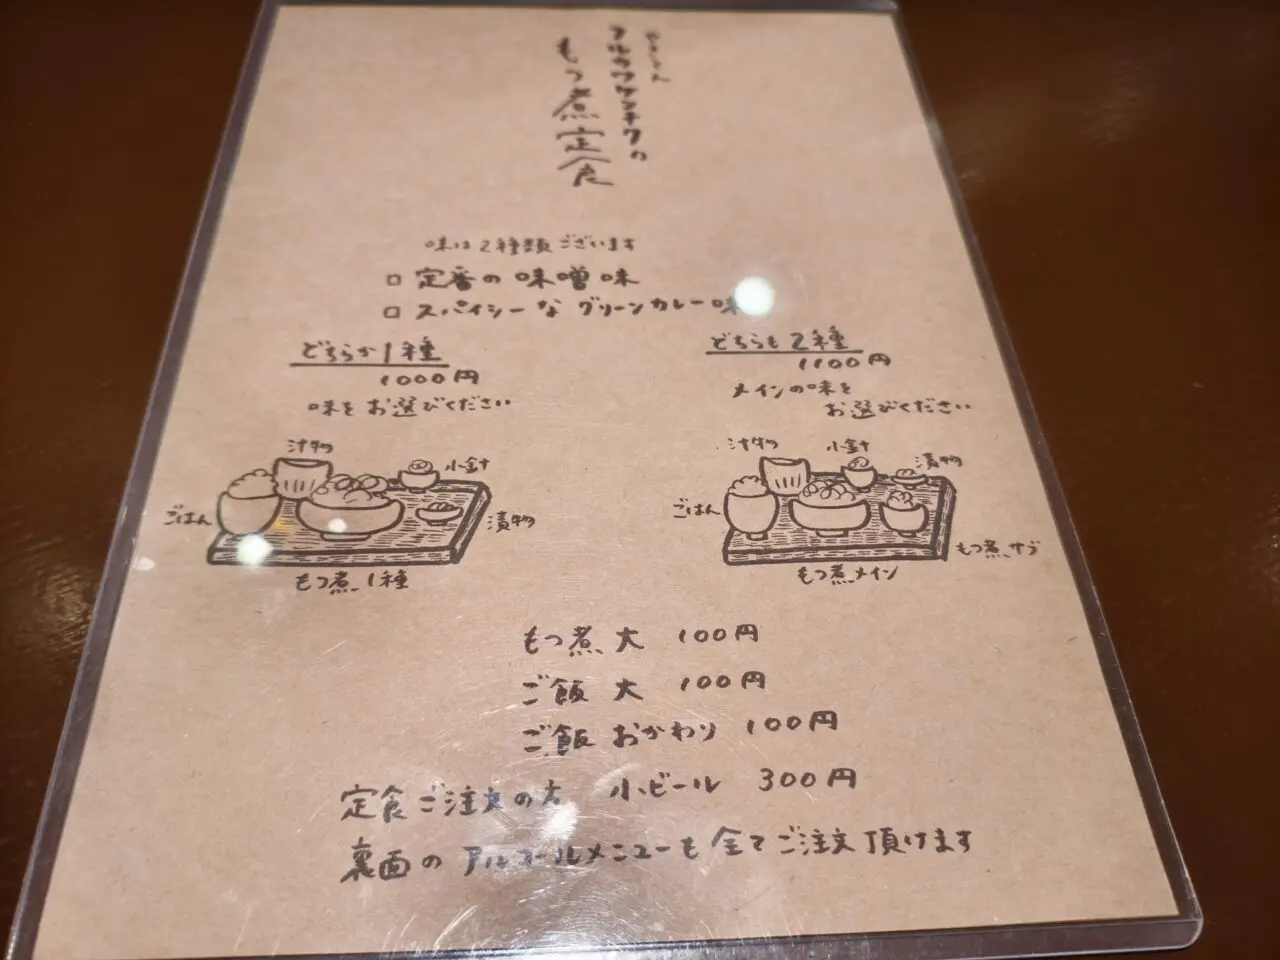 マルカワケンチクの
もつ煮定食
味は2種類ございます
□ 定番の味噌味
□ スパイシーなグリーンカレー味
どちらか1種
1000円
味をお選びください
どちらも2種
1100円
メインの味を
お選びください
汁物
小鉢
ごはん
漬物
もつ煮1種
汁物
小鉢
漬物
ごはん
もつ煮サブ
もつ煮メイン
もつ煮 大 100円
ご飯 大 100円
ご飯 おかわり 100円
定食ご注文の方 小ビール 300円
裏面のアルコールメニューも全てご注文頂けます